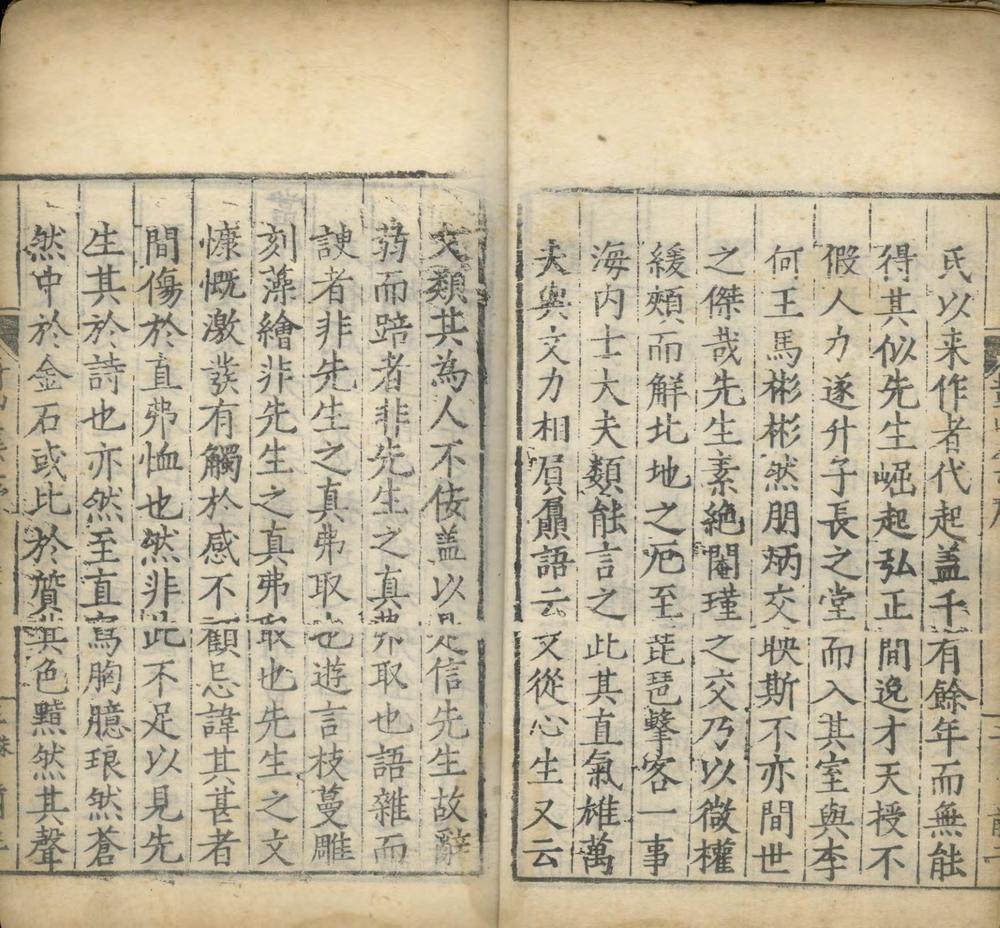 氏以来作者代起盖千有餘年而無能
得其似先生崛起弘正間逸才天授不
假人力遂升子長之堂而入其室與李
何王馬彬彬然朋炳交映斯不亦間世
之傑哉先生素絶閹瑾之交乃以微權
緩頰而解北地之厄至琵琶擊客一事
海内士大夫類能言之此其直氣雄萬
夫與文力相屓贔語云又從心生又云
文類其為人不佞盖以是信先生故辭
蒻而踣者非先生之真弗取也語雜而
諛者非先生之真弗取也遊言枝蔓雕
刻藻繪非先生之真弗取也先生之文
慷慨激發有觸於感不顧忌諱其甚者
間傷於直弗恤也然非此不足以見先
生其於詩也亦然至直寫胸臆琅然蒼
然中於金石或比於贗其色黯然其聲